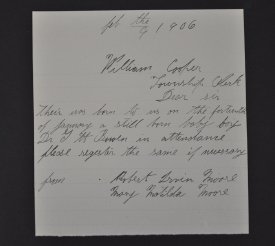 feb the 9 1906
William Cooper
Township Clerk
Dear sir
Their was born to us on the fortenth
of january a still born baby boy
Dr J H in attendance
please regester the same if necessary
from Robert Ervin Moore
Mary Matilda Moore